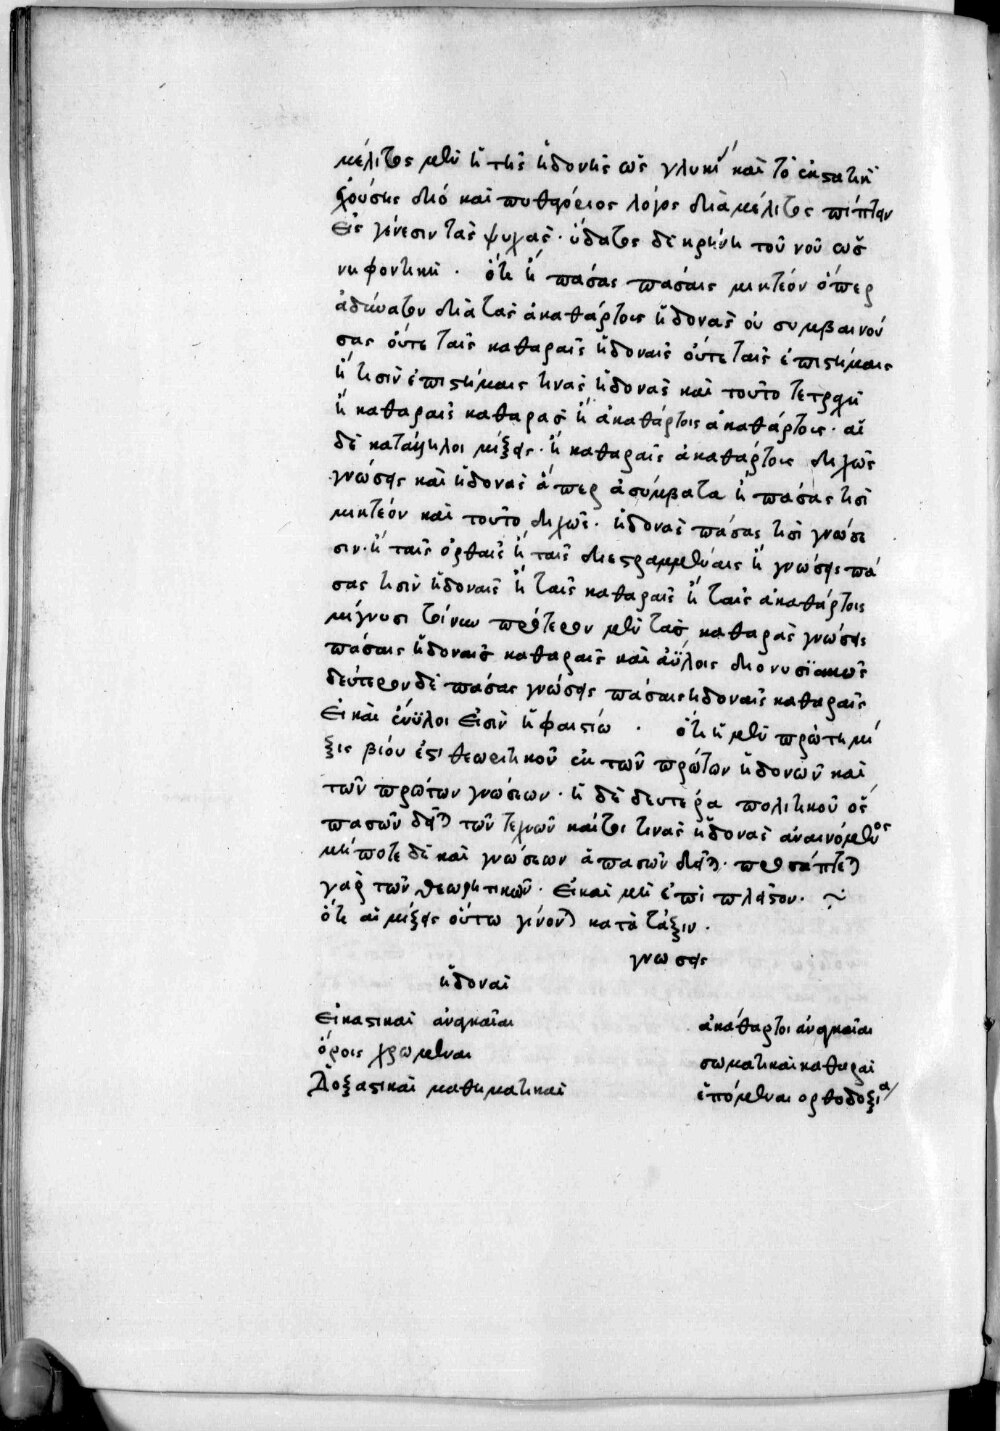 μέλιτος μὲν ἡ τῆς ἡδονῆς ὡς γλυκὺ καὶ τὸ ἐκστατικὸν
ἐχούσης διό καὶ πυθαγόρειος λόγος διὰ μέλιτος πίπτειν
εἰς γένεσιν τὰς ψυχάς· ὕδατος δὲ κρήνη τοῦ νοῦ ὡς
νηφαντική · ὅτι ἢ πάσας πάσαις μικτέον ὅπερ
ἀδύνατον διὰ τὰς ἀκαθάρτοις ἡδονὰς οὐ συμβαινού
σας οὔτε ταῖς καθαραῖς ἡδοναῖς οὔτε ταῖς ἐπιστήμαις
ἢ τισὶν ἐπιστήμαις τινὰς ἡδονὰς καὶ τοῦτο τετραχῇ
ἢ καθαραῖς καθαρὰς ἢ ἀκαθάρτοις ἀκαθάρτοις· αἱ
δὲ κατάλληλοι μίξεις· ἢ καθαραῖς ἀκαθάρτοις διχῶς
γνώσεις καὶ ἡδονὰς ἅπερ ἀσύμβατα ἢ πάσας τισὶ
μικτέον καὶ τοῦτο διχῶς· ἡδονὰς πάσας τισὶ γνώσε
σιν· ἢ ταῖς ὀρθαῖς ἢ ταῖς διεστραμμέναις ἢ γνώσεις πά
σας τισὶν ἡδοναῖς ἢ ταῖς καθαραῖς ἢ ταῖς ἀκαθάρτοις
μίγνυσι τοίνυν πρότερον μὲν τὰς καθαρὰς γνώσεις
πάσαις ἡδοναῖς καθαραῖς καὶ ἀΰλοις διονυσϊακῶς
δεύτερον δὲ πάσας γνώσεις πάσαις ἡδοναῖς καθαραῖς
εἰ καὶ ἔνϋλοι εἰσὶν ἡφαιστίω · ὅτι ἡ μὲν πρώτη μί
ξις βίου ἐστι θεωρητικοῦ ἐκ τῶν πρώτων ἡδονῶν καὶ
τῶν πρώτων γνώσεων· ἡ δὲ δευτέρα πολιτικοῦ ὃς
πασῶν δεῖται τῶν τεχνῶν καίτοι τινὰς ἡδονὰς ἀναινόμενος
μήποτε δὲ καὶ γνώσεων ἁπασῶν δεῖται· προσάπτεται
γὰρ τῶν θεωρητικῶν· εἰ καὶ μὴ ἐπὶ πλεῖστον· ~
ὅτι αἱ μίξεις οὕτω γίνονται κατὰ τάξιν·
γνωσεις
ἡδοναὶ
εἰκαστικαὶ ἀναγκαῖαι ἀκάθαρτοι ἀναγκαῖαι
ὅροις χρωμεναι σωματικαὶ καθαραὶ
Δοξαστικαὶ μαθηματικαὶ ἑπόμεναι ορθοδοξια